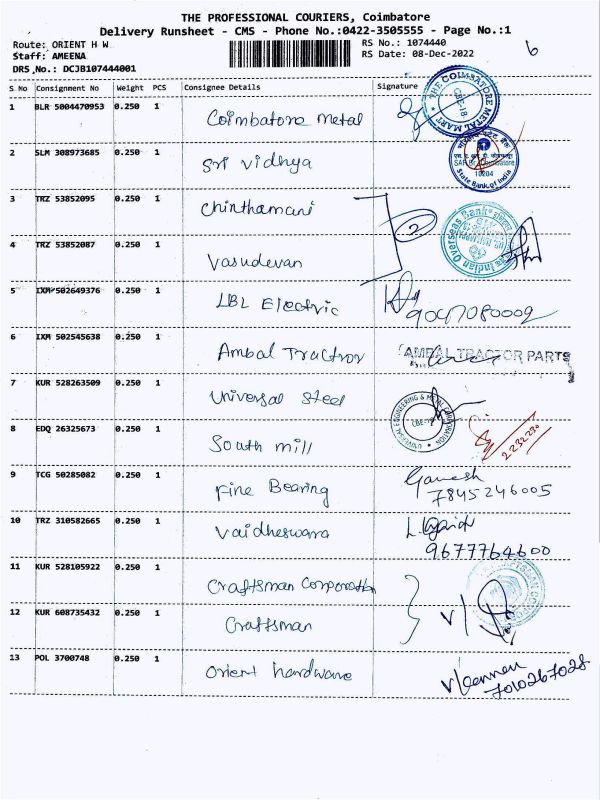 THE PROFESSIONAL COURIERS, Coimbatore
Delivery Runsheet - CMS - Phone No.:0422-3505555 - Page No.:1
Route: ORIENT H W RS No.: 1074440 6
Staff: AMEENA RS Date: 08-Dec-2022
DRS No.: DCJB107444001
S No Consignment No Weight PCS Consignee Details Signature
1 BLR 5004470953 0.250 1 Coimbatore Metal
THE COIMBATORE METAL MART
CBE-18
2 SLM 308973685 0.250 1 Sri Vidhya
10204
State Bank of India
3 TRZ 53852095 0.250 1 Chinthamani
2
Indian Overseas Bank
4 TRZ 53852087 0.250 1 Vasudevan
5 IXM 502649376 0.250 1 LBL Electric
9047080002
6 IXM 502545638 0.250 1 Ambal Tractor AMBAL TRACTOR PARTS
7 KUR 528263509 0.250 1 Universal Steel
UNIVERSAL ENGINEERING & METAL CORPORATION
8 EDQ 26325673 0.250 1 South mill
2232230
9 TCG 50285082 0.250 1 Fine Bearing Ganesh
7845246005
10 TRZ 310582665 0.250 1 Vaidheswara
9677764600
11 KUR 528105922 0.250 1 Craftsman Corporation
12 KUR 608735432 0.250 1 Craftsman
13 POL 3700748 0.250 1 Orient hardware
7010267028